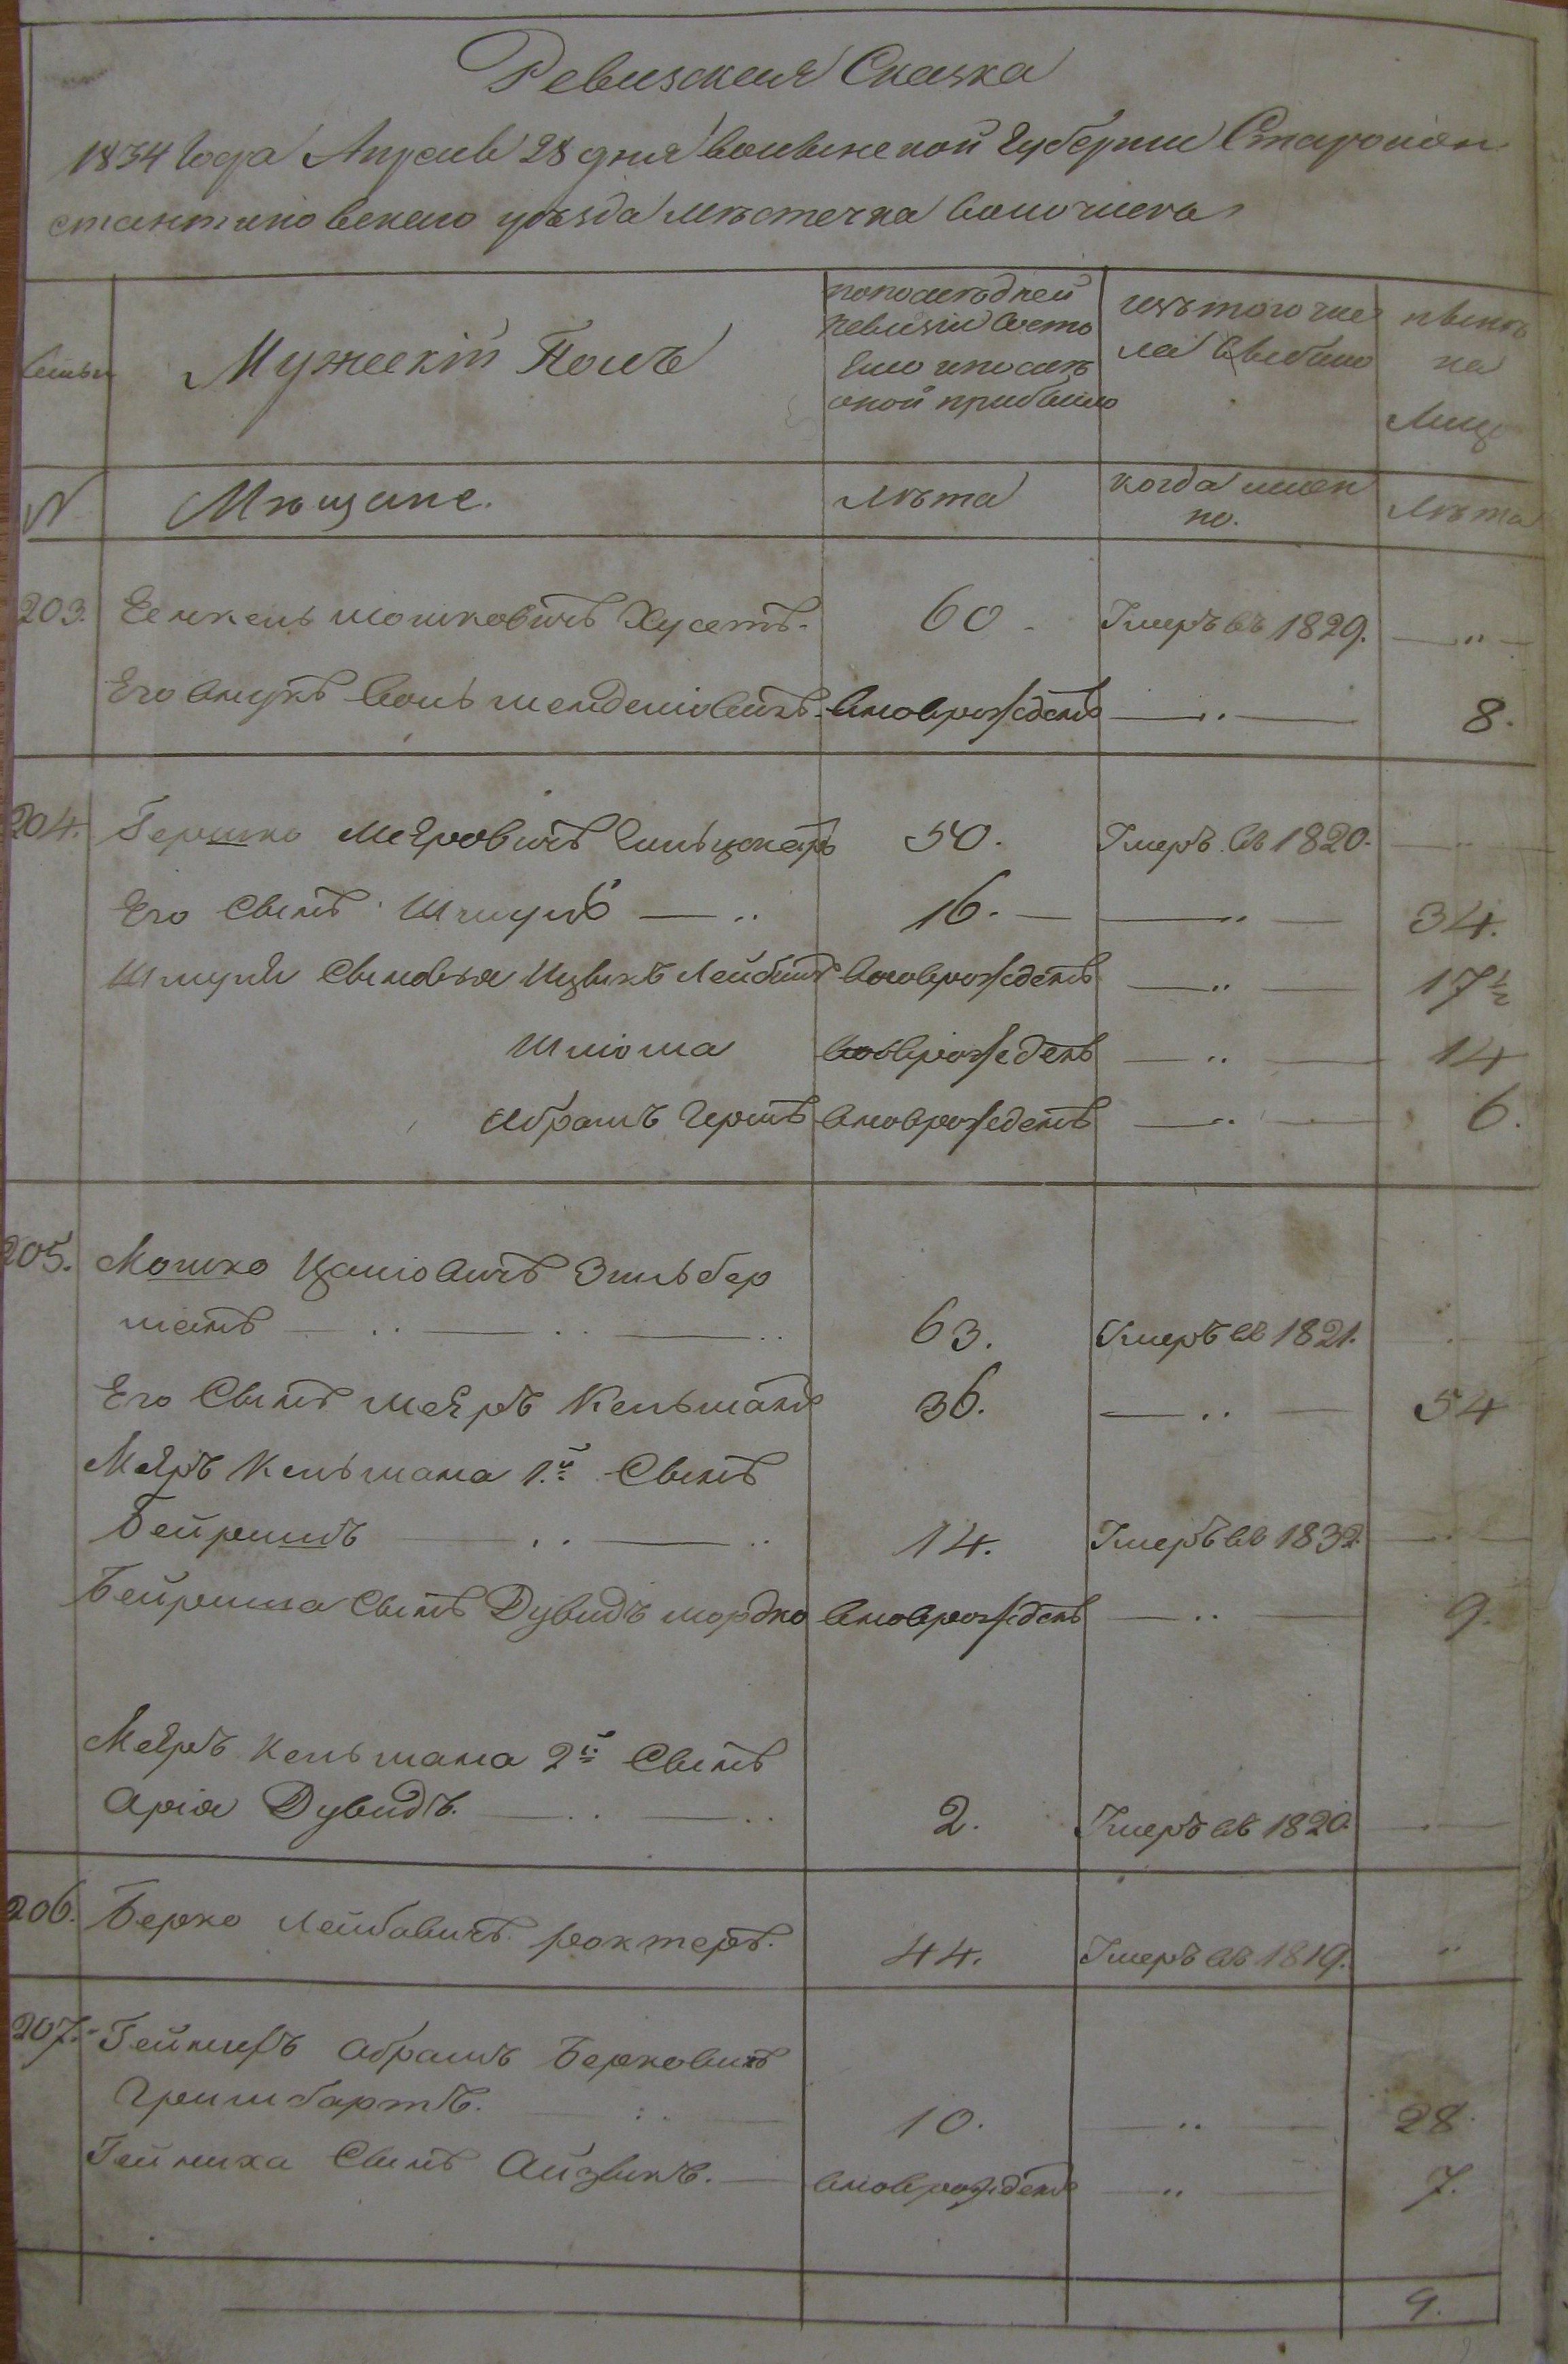 Ревизская Сказка
1834 Года Апреля 28 дня волынской Губернии Старокон
стантиновского уѣзда мѣстечка Волочиска
Семьи
Мужескій Полъ
попослѣдней
Ревизіи Состо
яло ипослѣ
оной прибыло
изътого чис
ла выбыло
нынѣ
на
Лицо
№
Мѣщане.
Лѣта
когда имен
но.
Лѣта
203. Мошковичъ 60 Умеръ въ 1829. — " —
Его внукъ Воль Менделіовичъ вновьрожденъ — " — 8.
204. Гершко Меяровичъ 50. Умеръ въ 1820.
Его Сынъ Шмуль — " 16. — — " — 34.
Шмуля Сыновья Ицыкъ Лейбишъ вновьрожденъ — " — 17½
Шліома вновьрожденъ — " — 14
Абрамъ Гершъ вновьрожденъ — " — 6.
205. Мошко Цаліовичъ Зильбер
манъ — " — " — " 63. Умеръ въ 1821.
Его Сынъ Меяръ Кельманъ 36. — " — 54
Меяръ Кельмана 1й Сынъ
Бейришъ — " — " 14. Умеръ въ 1832.
Бейриша Сынъ Дувидъ Мордко вновьрожденъ — " — 9.
Меяръ Кельмана 2й Сынъ
Арія Дувидъ. — " — " 2. Умеръ въ 1820.
206. Берко Лейбовичъ Рохтеръ. 44. Умеръ въ 1819. "
207. Абрамъ Берковичъ
10. — " — 28.
Сынъ Айзыкъ. — вновьрожденъ — " — 7.
9.